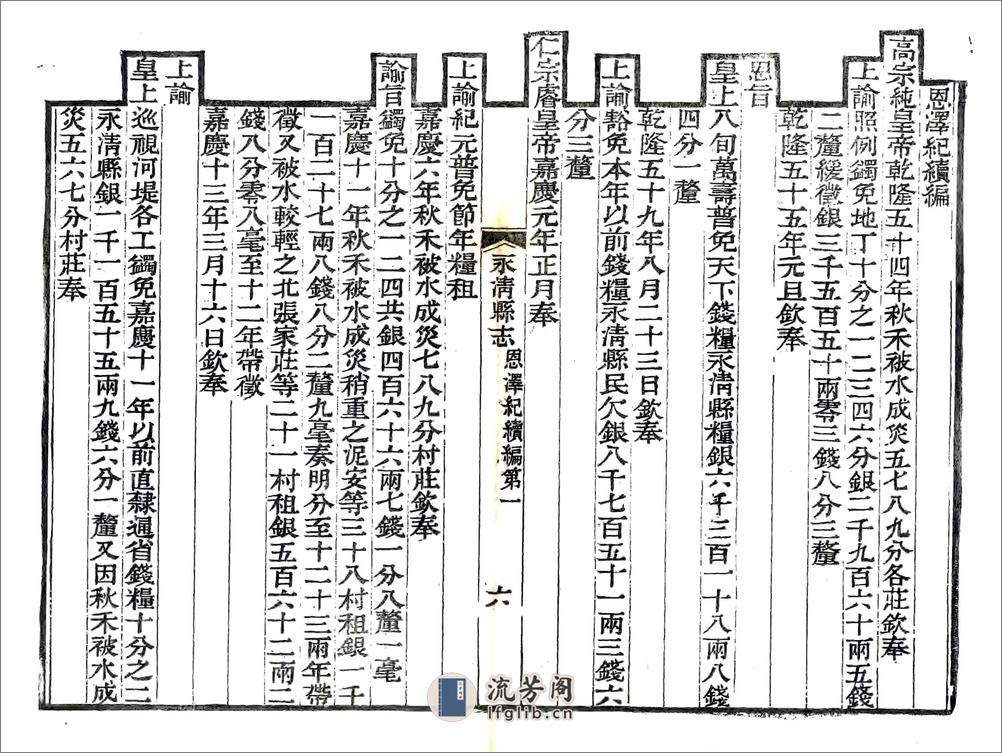 恩澤紀續編
高宗純皇帝乾隆五十四年秋禾被水成災五七八九分各莊欽奉
上諭照例蠲免地丁十分之一二三四六分銀二千九百六十兩五錢
二釐緩徵銀三千五百五十兩零三錢八分三釐
乾隆五十五年元旦欽奉
恩旨
皇上八旬萬壽普免天下錢糧永淸縣糧銀六千三百一十八兩八錢
四分一釐
乾隆五十九年八月二十三日欽奉
上諭豁免本年以前錢糧永淸縣民欠銀八千七百五十一兩三錢六
分三釐
仁宗睿皇帝嘉慶元年正月奉
上諭紀元普免節年糧租
永淸縣志
恩澤紀續編第一
六
嘉慶六年秋禾被水成災七八九分村莊欽奉
諭旨蠲免十分之一二四共銀四百六十六兩七錢一分八釐一毫
嘉慶十一年秋禾被水成災稍重之泥安等三十八村租銀一千
一百二十七兩八錢八分二釐九毫奏明分至十二十三兩年帶
徵又被水較輕之北張家莊等二十一村租銀五百六十二兩二
錢八分零八毫至十二年帶徵
嘉慶十三年三月十六日欽奉
上諭
皇上巡視河堤各工蠲免嘉慶十一年以前直隸通省錢糧十分之二
永淸縣銀一千一百五十五兩九錢六分一釐又因秋禾被水成
災五六七分村莊奉
流芳阁
lfglib.cn